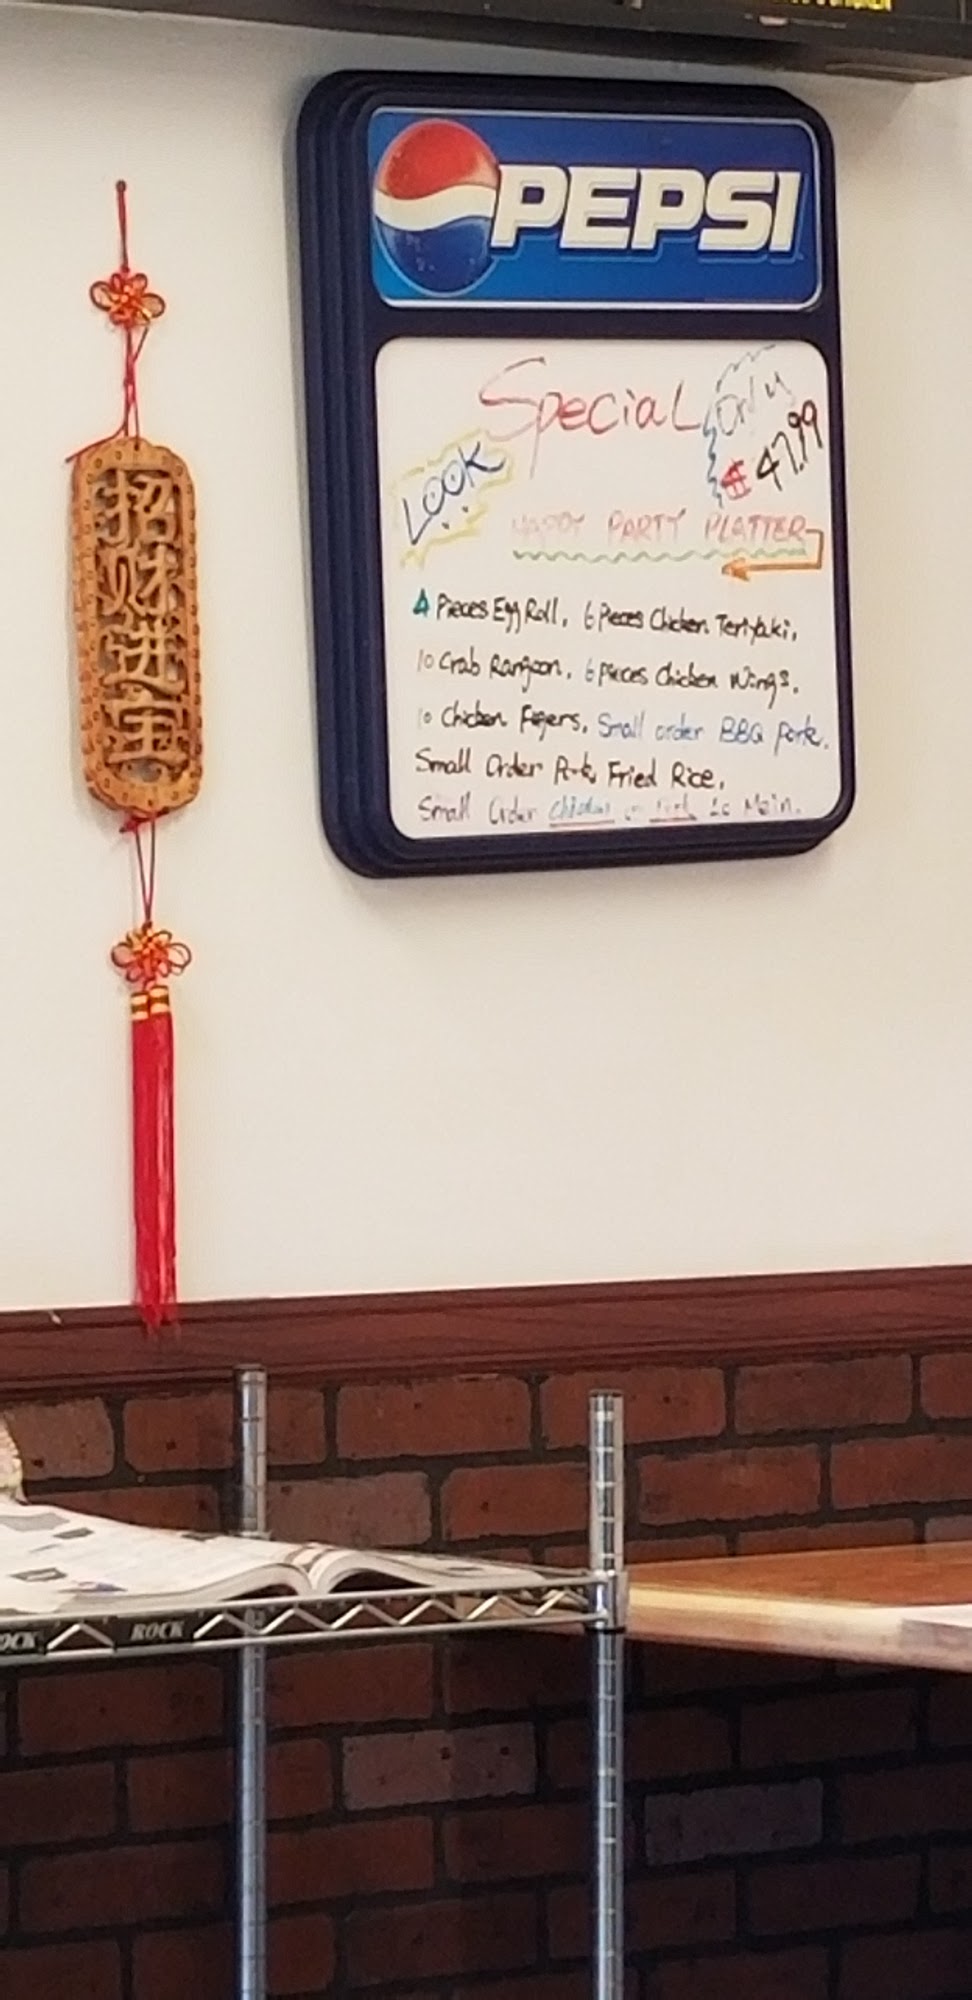 招财进宝
PEPSI
Special
Only
$47.99
LOOK
HAPPY PARTY PLATTER
4 Pieces Egg Roll, 6 Pieces Chicken Teriyaki,
10 Crab Rangoon, 6 pieces Chicken Wings,
10 Chicken Figers, Small order BBQ pork,
Small Order Pork Fried Rice,
Small Order Chicken or Pork Lo Mein.
ROCK